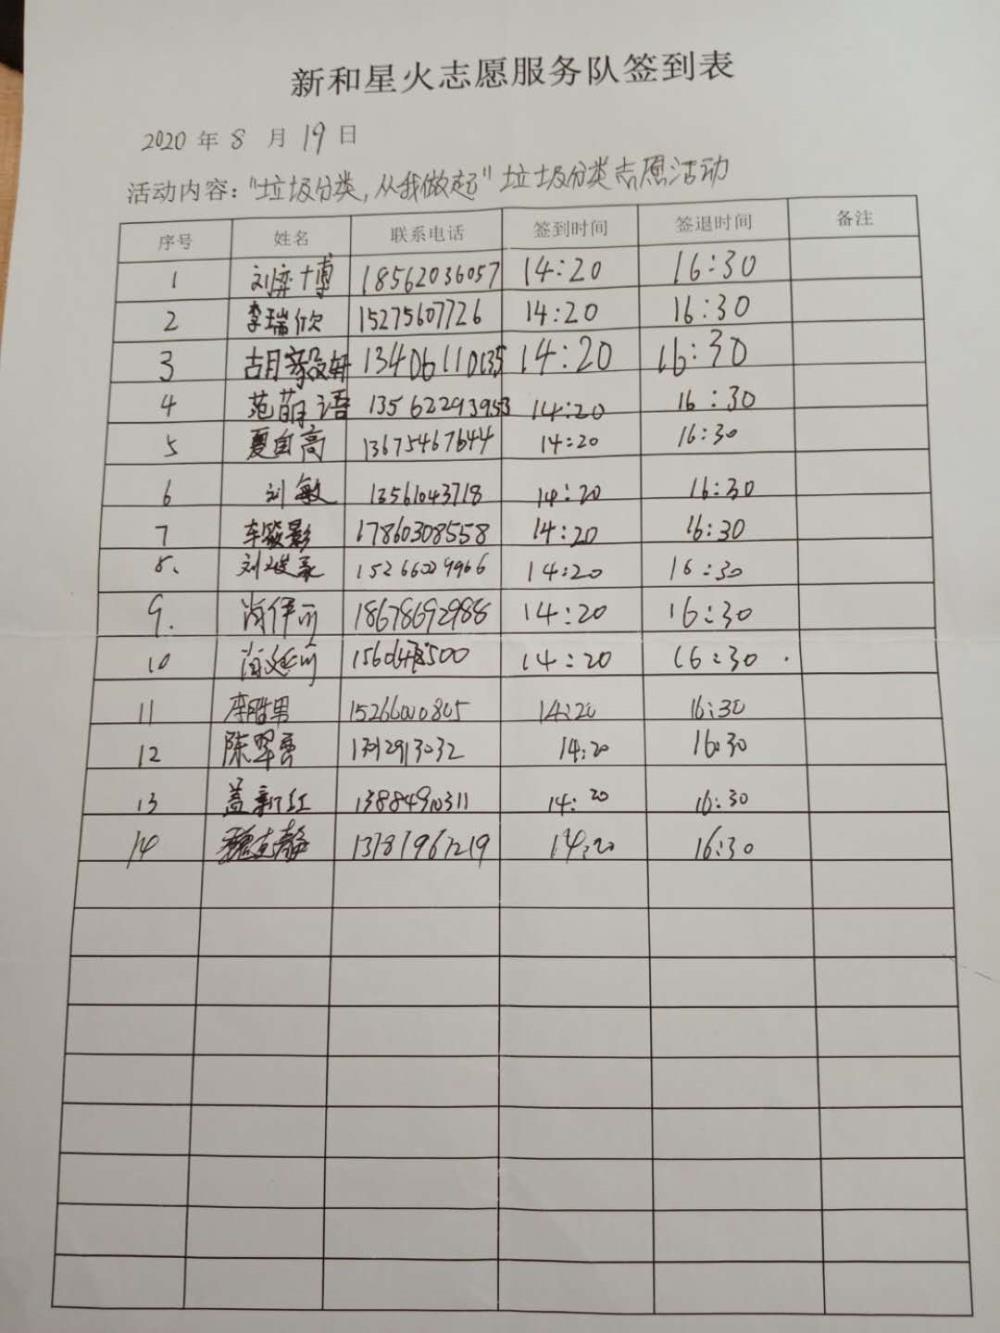 新和星火志愿服务队签到表
2020 年 8 月 19 日
活动内容："垃圾分类，从我做起"垃圾分类志愿活动
序号 姓名 联系电话 签到时间 签退时间 备注
1 刘奕博 18562036057 14:20 16:30
2 李瑞欣 15275607726 14:20 16:30
3 胡毅轩 13406110135 14:20 16:30
4 范萌语 13562293953 14:20 16:30
5 夏自高 13675467644 14:20 16:30
6 刘敏 13561043718 14:20 16:30
7 车筱影 17860308558 14:20 16:30
8. 刘 15266029966 14:20 16:30
9. 18678692988 14:20 16:30
10 14:20 16:30
11 李胜男 14:20 16:30
12 陈翠 14:20 16:30
13 盖新红 13884910311 14:20 16:30
14 魏志静 13181967219 14:20 16:30